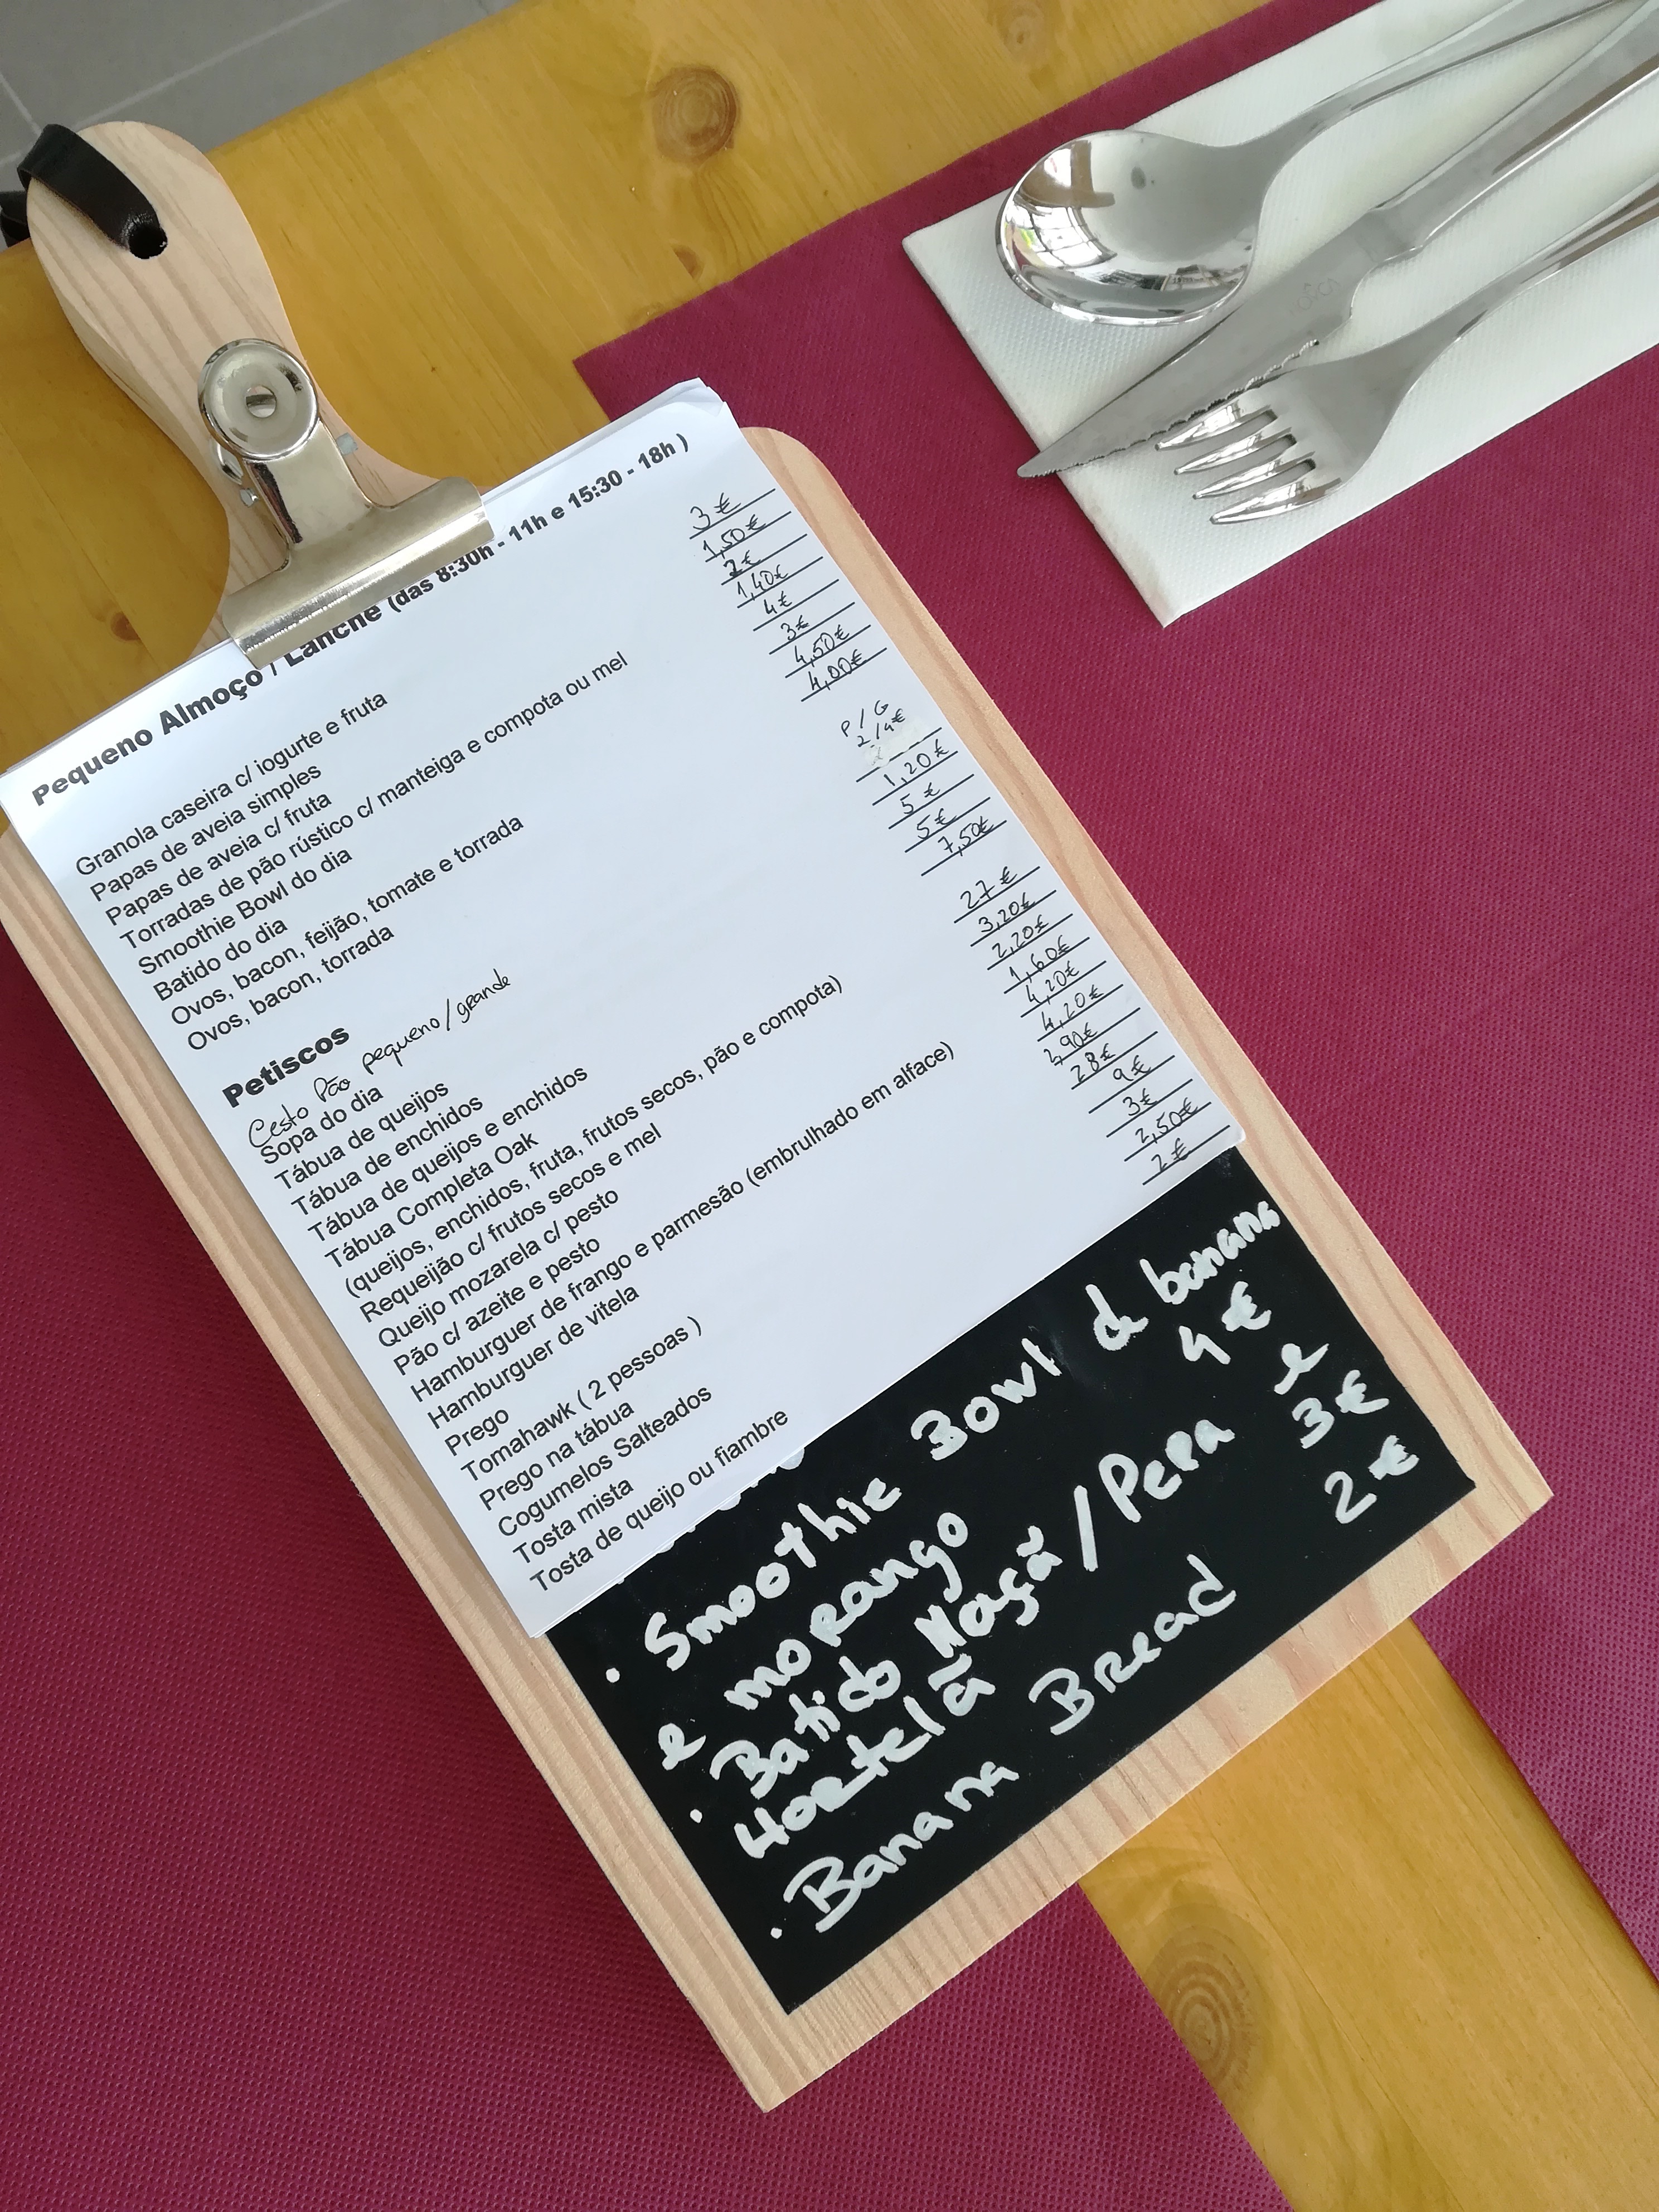 Pequeno Almoço / Lanche (das 8:30h - 11h e 15:30 - 18h )
Granola caseira c/ iogurte e fruta 3€
Papas de aveia simples 1,50€
Papas de aveia c/ fruta 2€
Torradas de pão rústico c/ manteiga e compota ou mel 1,40€
Smoothie Bowl do dia 4€
Batido do dia 3€
Ovos, bacon, feijão, tomate e torrada 4,50€
Ovos, bacon, torrada 4,00€
Petiscos P/G
Cesto Pão pequeno/grande 2/4€
Sopa do dia 1,20€
Tábua de queijos 5€
Tábua de enchidos 5€
Tábua de queijos e enchidos 7,50€
Tábua Completa Oak
(queijos, enchidos, fruta, frutos secos, pão e compota) 27€
Requeijão c/ frutos secos e mel 3,20€
Queijo mozarela c/ pesto 2,20€
Pão c/ azeite e pesto 1,60€
Hamburguer de frango e parmesão (embrulhado em alface) 4,20€
Hamburguer de vitela 4,20€
Prego 2,90€
Tomahawk ( 2 pessoas ) 28€
Prego na tábua 9€
Cogumelos Salteados 3€
Tosta mista 2,50€
Tosta de queijo ou fiambre 2€
• Smoothie Bowl de banana
e morango 4€
• Batido Maçã/Pera e
Hortelã 3€
• Banana Bread 2€